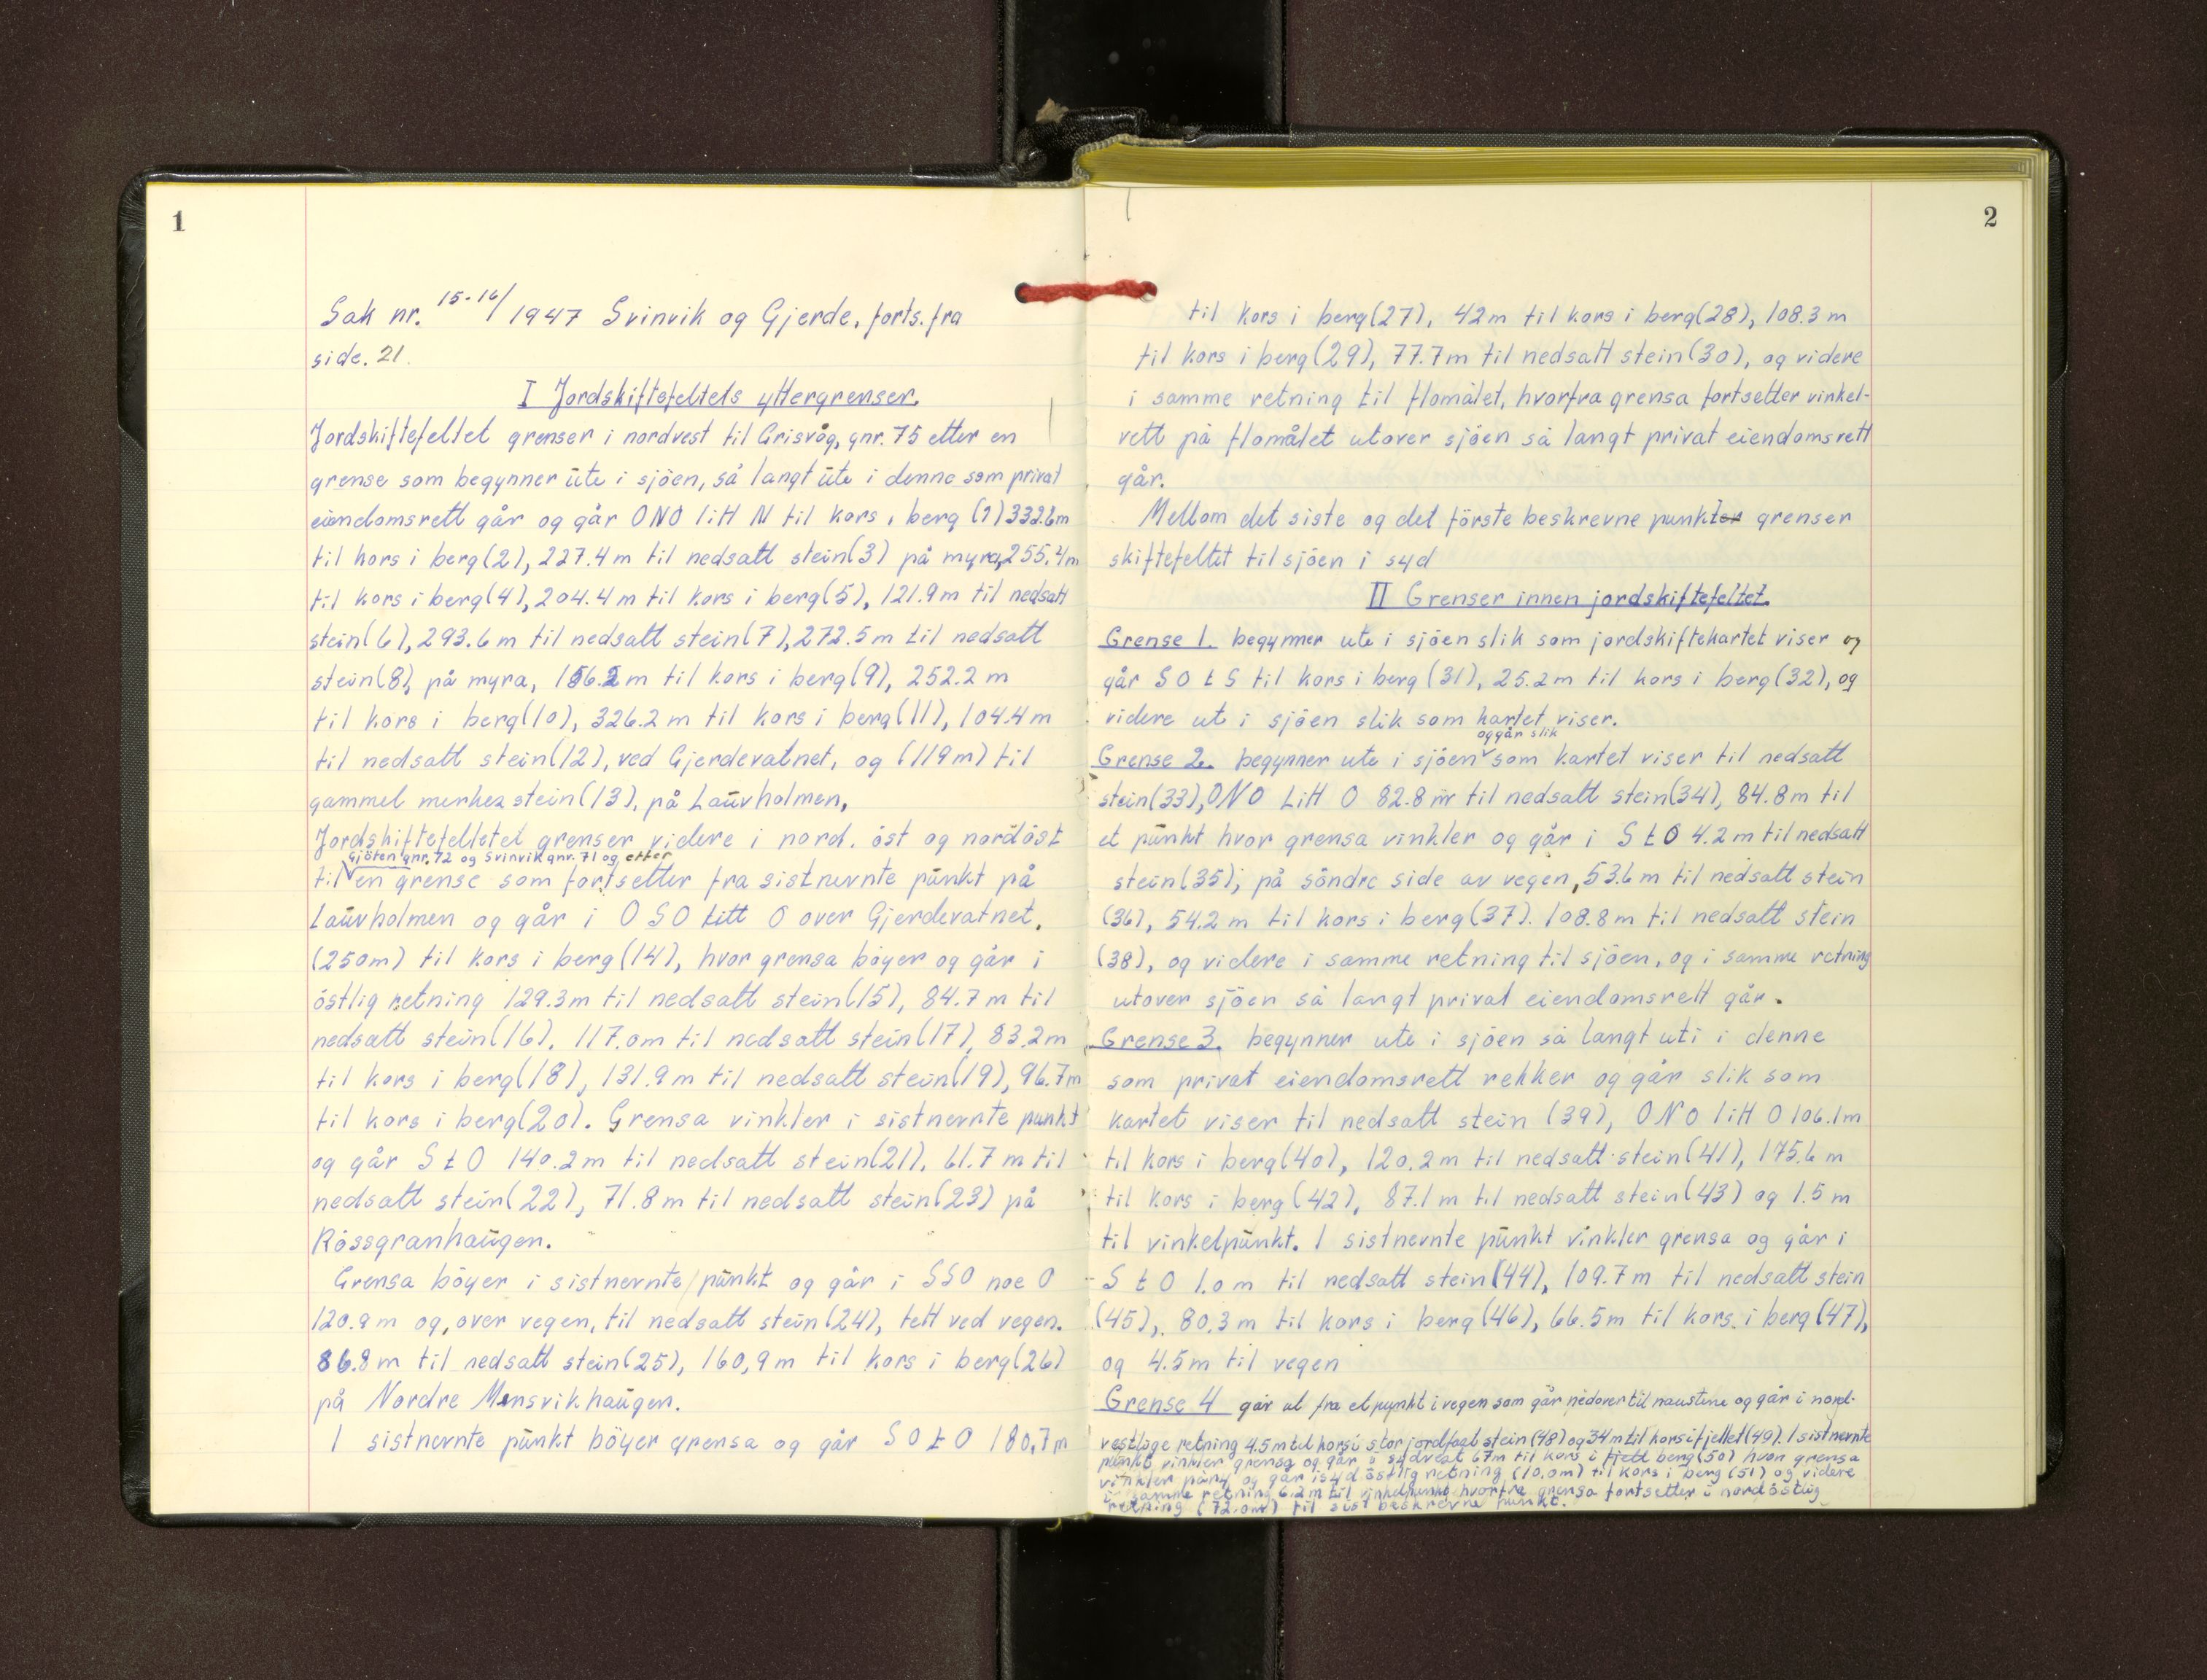 1
Sak nr. 15-16/1947 Svinvik og Gjerde, forts. fra
side. 21.
I Jordskiftefeltets yttergrenser.
Jordskiftefeltet grenser i nordvest til Grisvåg, gnr. 75 etter en
grense som begynner ute i sjöen, så langt ute i denne som privat
eiendomsrett går og går ONO litt N til kors i berg (1) 332.6m
til kors i berg (2), 227.4 m til nedsatt stein (3) på myra, 255.4m
til kors i berg (4), 204.4 m til kors i berg (5), 121.9 m til nedsatt
stein (6), 293.6 m til nedsatt stein (7), 272.5 m til nedsatt
stein (8), på myra, 156.2 m til kors i berg (9), 252.2 m
til kors i berg (10), 326.2 m til kors i berg (11), 104.4 m
til nedsatt stein (12), ved Gjerdevatnet, og (119 m) til
gammel merkes stein (13), på Lauvholmen,
Jordskiftefelletet grenser videre i nord, öst og nordöst
Gjöten gnr. 72 og Svinvik gnr. 71 og etter
til en grense som fortsetter fra sistnevnte punkt på
Lauvholmen og går i OSO litt O over Gjerdevatnet,
(250m) til kors i berg (14), hvor grensa böyer og går i
östlig retning 129.3m til nedsatt stein (15), 84.7 m til
nedsatt stein (16), 117.0m til nedsatt stein (17), 83.2m
til kors i berg (18), 131.9 m til nedsatt stein (19), 96.7m
til kors i berg (20). Grensa vinkler i sistnevnte punkt
og går S t O 140.2 m til nedsatt stein (21), 61.7 m til
nedsatt stein (22), 71.8 m til nedsatt stein (23) på
Rössgranhaugen.
Grensa böyer i sistnevnte punkt og går i SSO noe O
120.9 m og, over vegen, til nedsatt stein (24), tett ved vegen.
86.8 m til nedsatt stein (25), 160,9 m til kors i berg (26)
på Nordre Mensvikhaugen.
I sistnevnte punkt böyer grensa og går SO t O 180,7 m
2
til kors i berg (27), 42m til kors i berg (28), 108.3 m
til kors i berg (29), 77.7m til nedsatt stein (30), og videre
i samme retning til flomålet, hvorfra grensa fortsetter vinkel-
rett på flomålet utover sjöen så langt privat eiendomsrett
går.
Mellom det siste og det förste beskrevne punkter grenser
skiftefeltet til sjöen i syd
II Grenser innen jordskiftefeltet.
Grense 1. begynner ute i sjöen slik som jordskiftekartet viser og
går SO t S til kors i berg (31), 25.2m til kors i berg (32), og
videre ute i sjöen slik som kartet viser.
og går slik
Grense 2. begynner ute i sjöen som kartet viser til nedsatt
stein (33), ONO Litt O 82.8 m til nedsatt stein (34), 84.8 m til
et punkt hvor grensa vinkler og går i S t O 4.2 m til nedsatt
stein (35), på söndre side av vegen, 53.6 m til nedsatt stein
(36), 54.2 m til kors i berg (37). 108.8 m til nedsatt stein
(38), og videre i samme retning til sjöen, og i samme retning
utover sjöen så langt privat eiendomsrett går.
Grense 3. begynner ute i sjöen så langt uti i denne
som privat eiendomsrett rekker og går slik som
kartet viser til nedsatt stein (39), ONO litt O 106.1m
til kors i berg (40), 120.2 m til nedsatt stein (41), 175.6 m
til kors i berg (42), 87.1 m til nedsatt stein (43) og 1.5 m
til vinkelpunkt. I sistnevnte punkt vinkler grensa og går i
S t O 1.0 m til nedsatt stein (44), 109.7 m til nedsatt stein
(45), 80.3 m til kors i berg (46), 66.5m til kors i berg (47),
og 4.5m til vegen
Grense 4 går ut fra et punkt i vegen som går nedover til naustene og går i nord-
vestlige retning 4.5m til kors i stor jordfast stein (48) og 34m til kors i fjellet (49). I sistnevnte
punkt vinkler grensa og går i sydvest 67m til kors i fjell berg (50) hvor grensa
vinkler påny og går i sydöstlig retning (10.0m) til kors i berg (51) og videre
i samme retning 6.2m til vinkelpunkt hvorfra grensa fortsetter i nordöstlig
retning (72.0m) til sist beskrevne punkt.